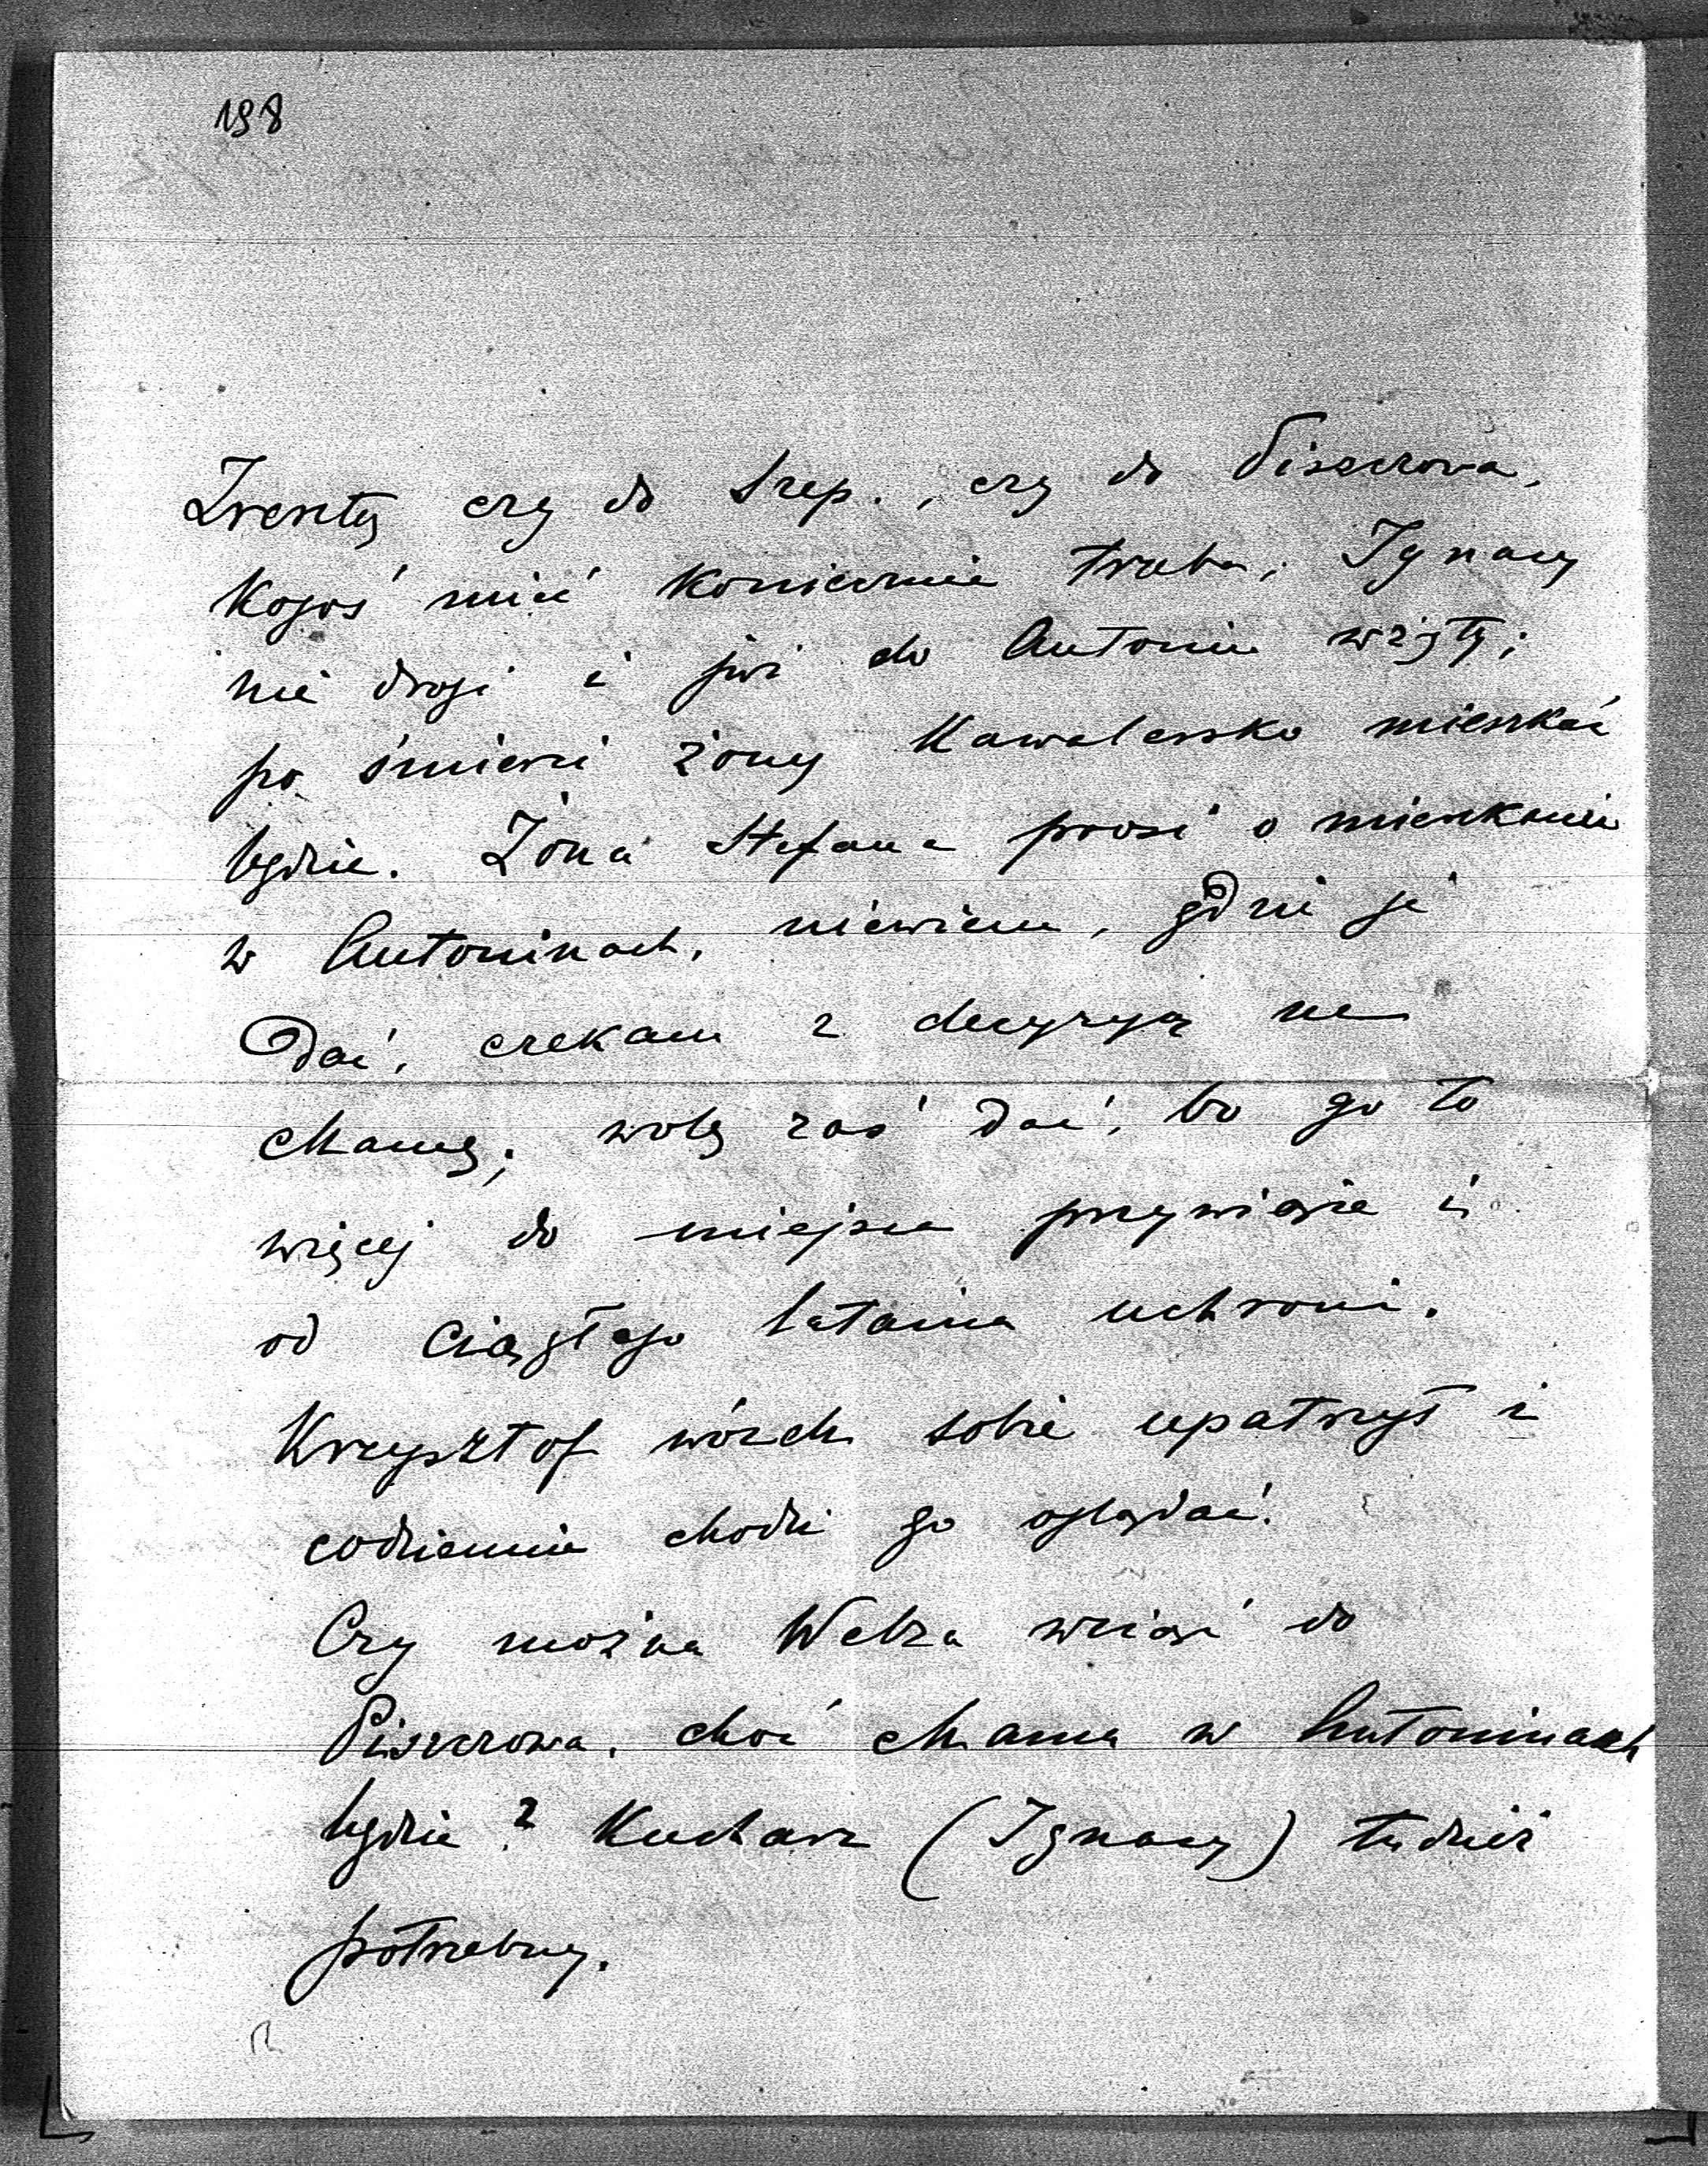 198
Zresztą czy do Szep., czy do Piszczowa,
kogoś mieć koniecznie trzeba; Ignacy
nie drogi i już do Antonin wzięty;
po śmierci żony kawalersko mieszkać
będzie. Żona Stefana prosi o mieszkanie
w Antoninach, niewiem, gdzie je
dać, czekam z decyzyą na
Mamę; wolę zaś dać, bo go to
więcej do miejsca przywiąże i
od ciągłego latania uchroni.
Krzysztof wózek sobie upatrzył i
codziennie chodzi go oglądać.
Czy można Webza wziąść do
Piszczowa, choć Mama w Antoninach
będzie? Kucharz (Ignacy) tudzież
potrzebny.